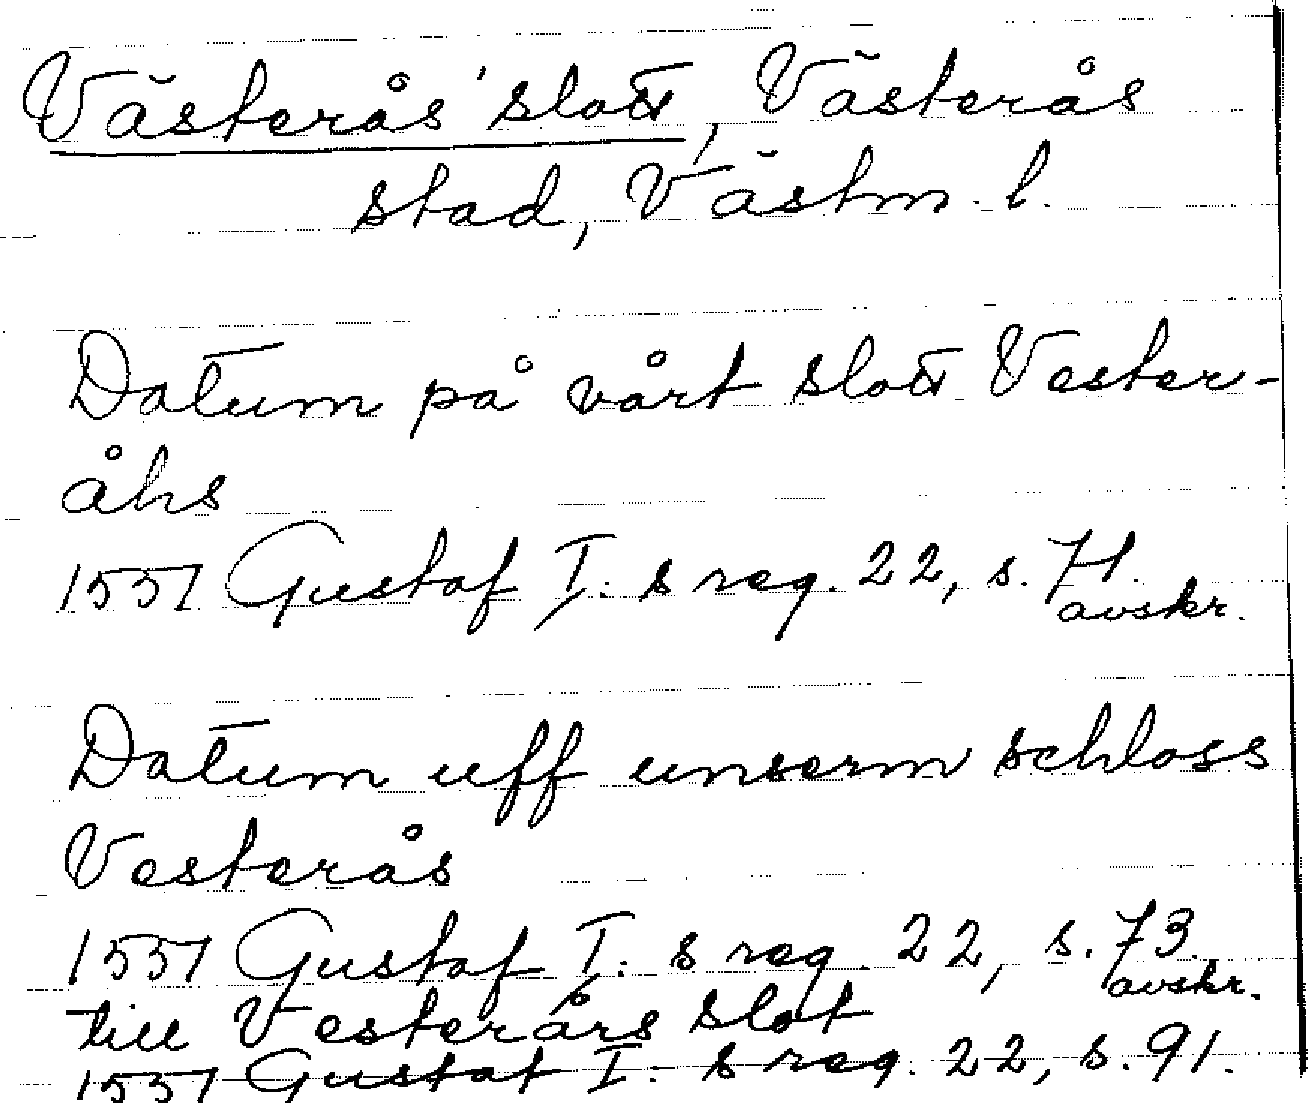 Västerås slott, Västerås
stad, Västm. l.
Datum på vårt slott Vester-
åhs
1551 Gustaf I: s reg. 22, s. 71.
avskr.
Datum uff unserm schloss
Vesterås
1551 Gustaf I: s reg. 22, s. 73.
avskr.
till Vesterårs slot
1551 Gustaf I: s reg. 22, s. 91.